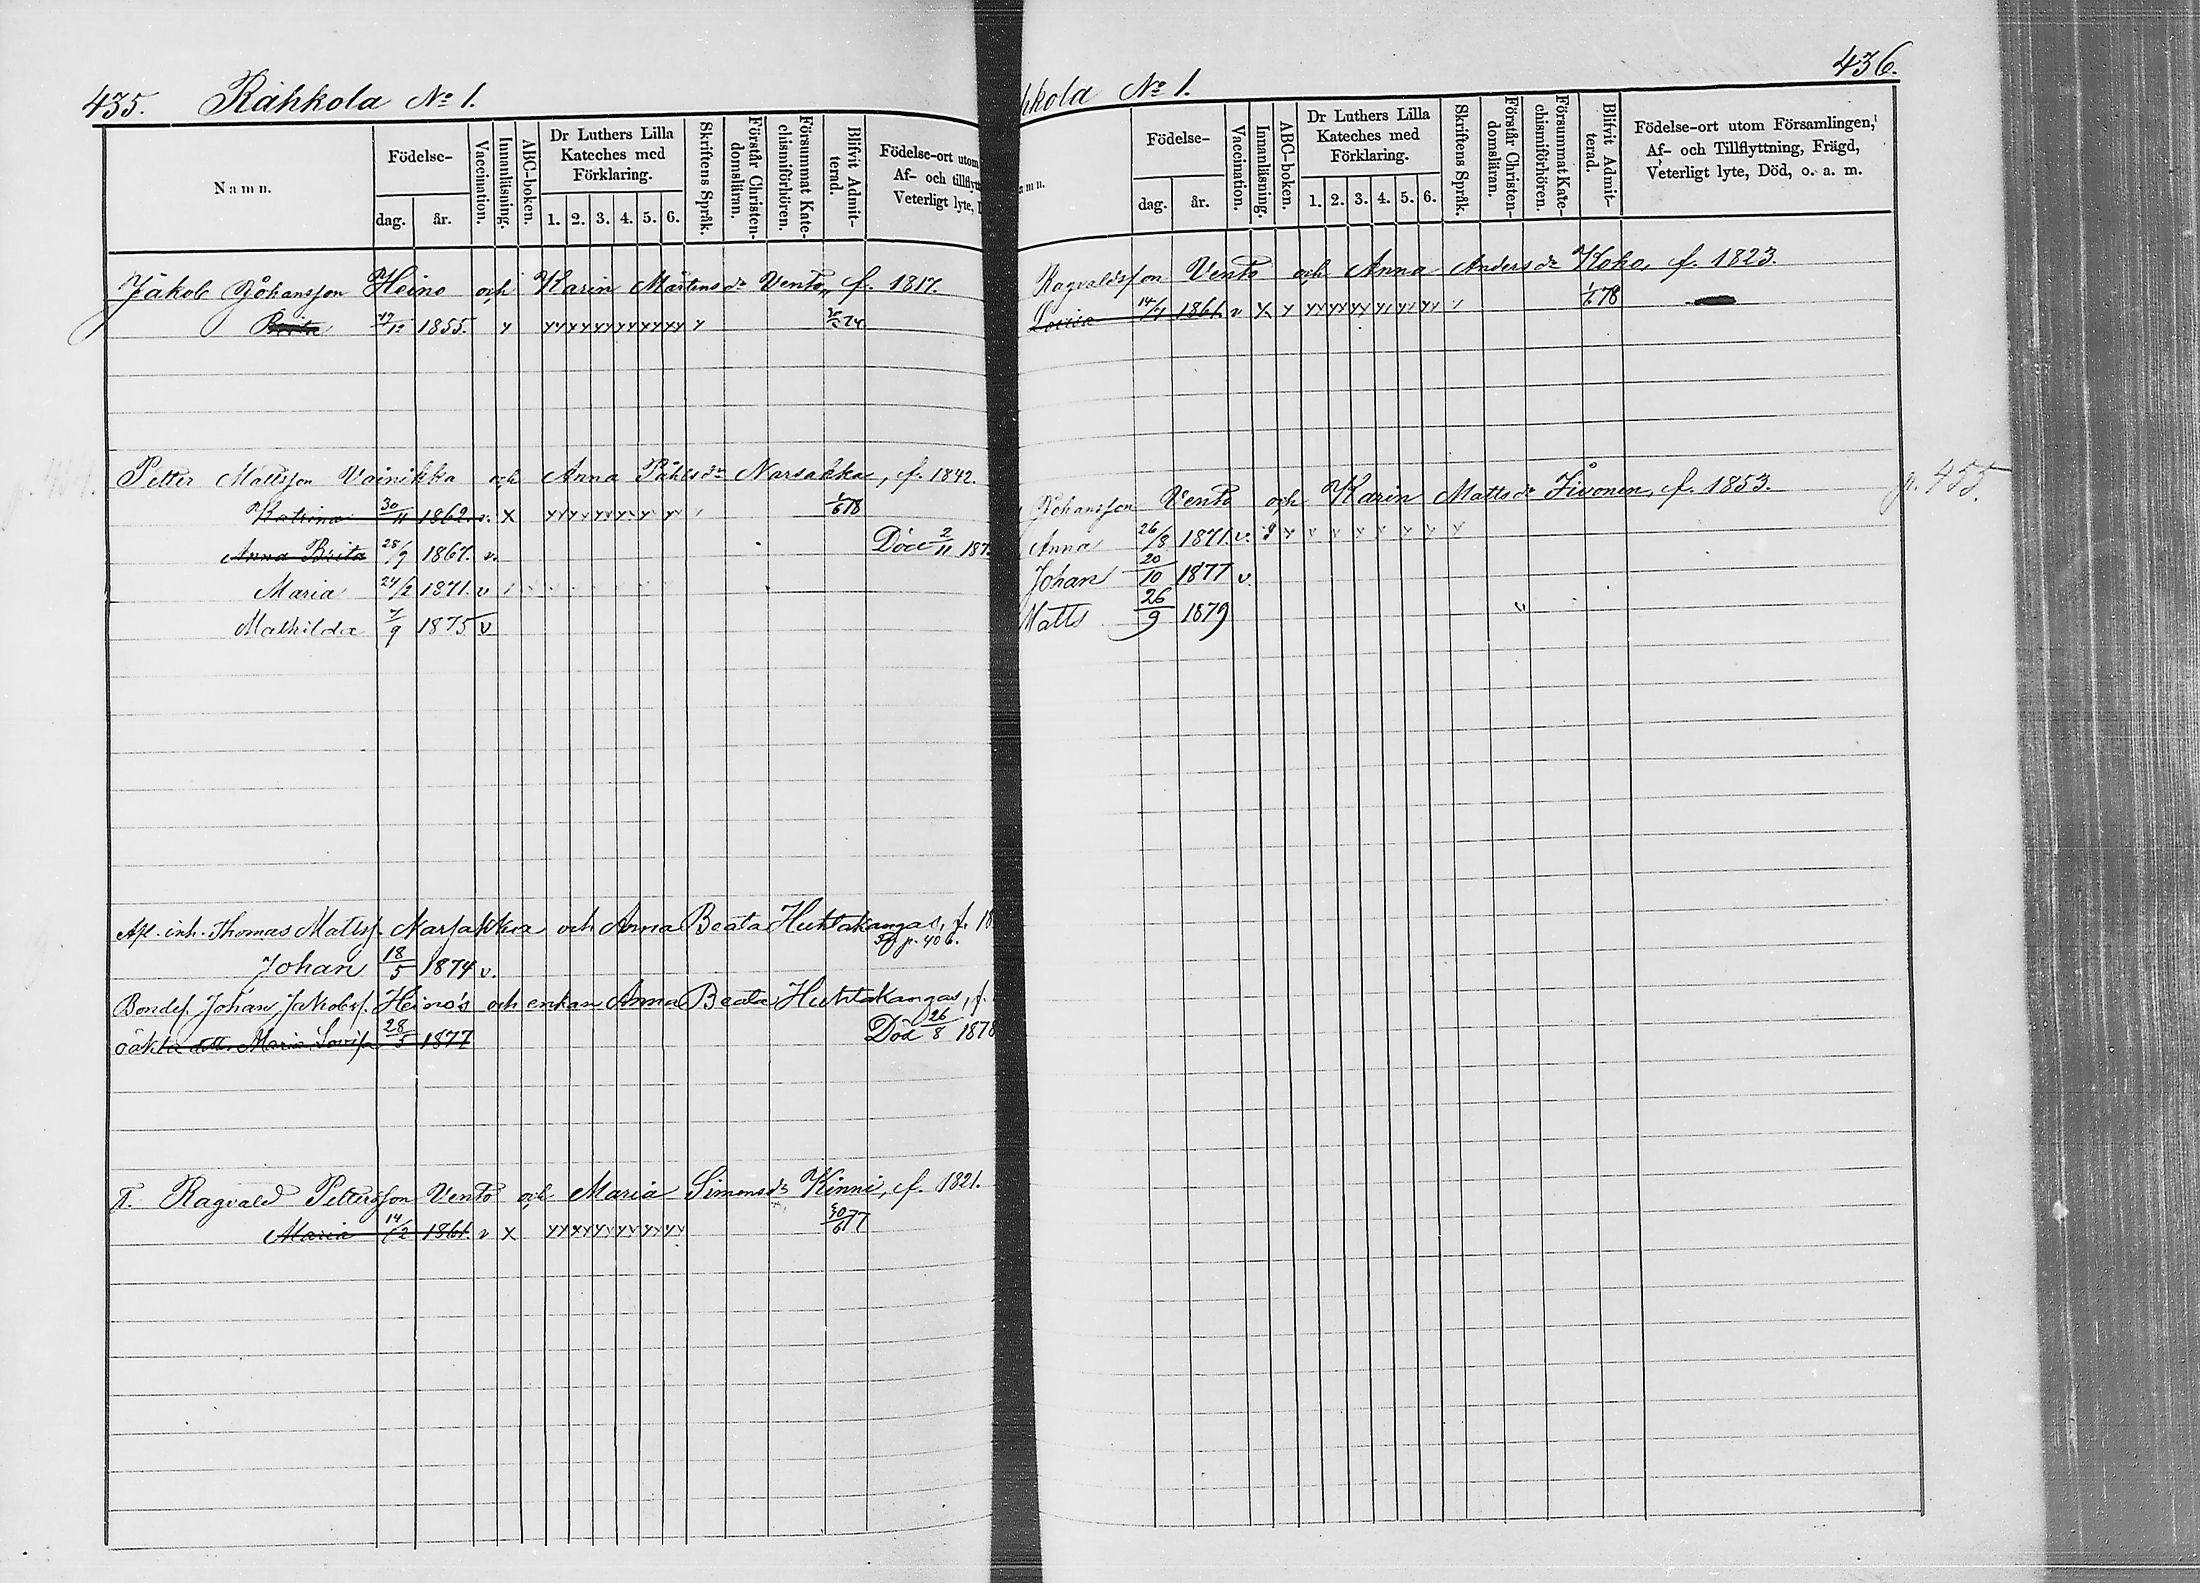 435. Rahkola No 1.
Namn.
Födelse-
dag. år.
Vaccination.
Innanläsning.
ABC-boken.
Dr Luthers Lilla Kateches med Förklaring.
1. 2. 3. 4. 5. 6.
Skriftens Språk.
Förstår Christen-domsläran.
Försummat Kate-chismiförhören.
Blifvit Admit-terad.
Födelse-ort utom
Af- och tillflytt
Veterligt lyte,
Jakob Johansson Heino och Karin Mårtensdr Vento, f. 1817.
Brita 1855.
Petter Mattsson Vainikka och Anna Påhlsdr Narsakka, f. 1842.
Katrina 30/11 1862. v. x 1/6 78
Anna Brita 28/9 1867. v. Död 2/11 187
Maria 24/2 1871. v
Mathilda 7/9 1875 v
Afl. inh. Thomas Matts. Narsakka och Anna Beata Huhtakangas, f. 18
p. 406.
Johan 18/5 1874 v.
Bondes. Johan Jakobs. Heino's och enkan Anna Beata Huhtakangas, f.
oäkta dtr. Maria Lovisa 28/5 1877 Död 26/8 1878
T. Ragvald Pettersson Vento och Maria Simonsdr Kinni, f. 1821.
Maria 14/2 1861. v x 30/6 77
436.
hkola No 1.
mn.
Födelse-
dag. år.
Vaccination.
Innanläsning.
ABC-boken.
Dr Luthers Lilla Kateches med Förklaring.
1. 2. 3. 4. 5. 6.
Skriftens Språk.
Förstår Christen-domsläran.
Försummat Kate-chismiförhören.
Blifvit Admit-terad.
Födelse-ort utom Församlingen,
Af- och Tillflyttning, Frägd,
Veterligt lyte, Död, o. a. m.
Ragvaldsson Vento och Anna Andersdr Koho, f. 1823.
Lovisa 14/4 1861. v x 1/6 78
Johansson Vento och Karin Mattsdr Iivonen, f. 1853. p. 455.
Anna 26/8 1871. v.
Johan 20/10 1877 v.
Matts 26/9 1879